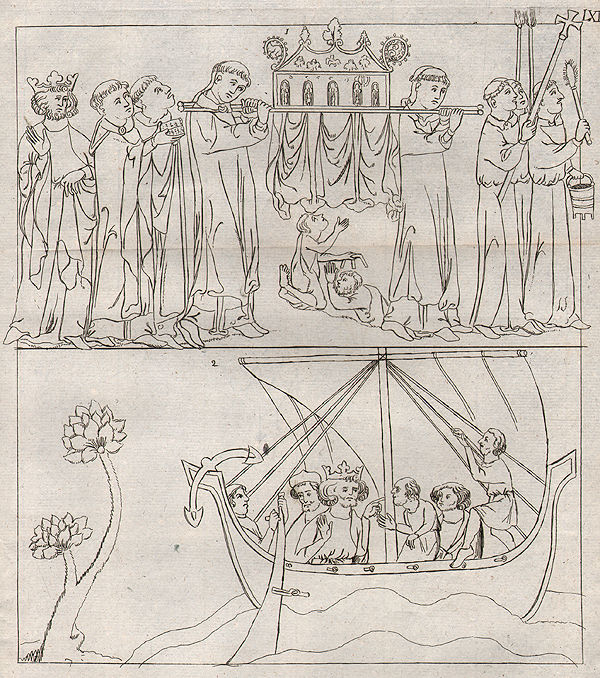 LXI
1
2